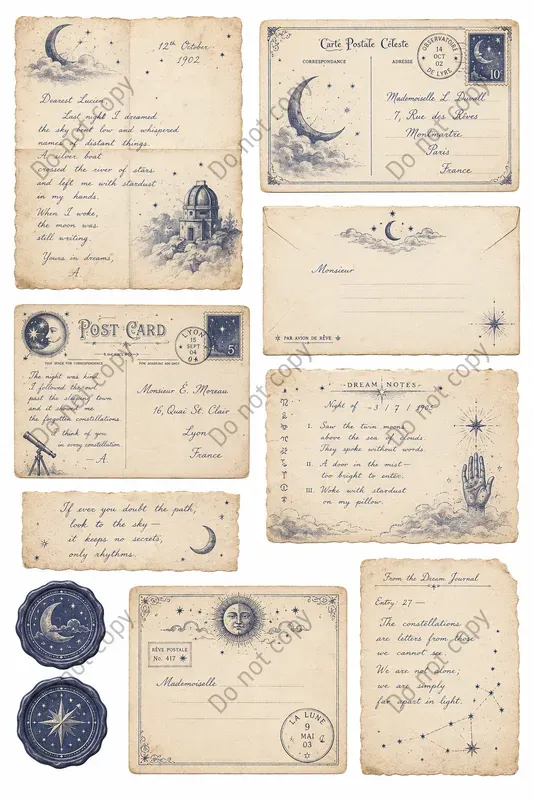 12th October
1902
Dearest Lucien,
Last night I dreamed
the sky bent low and whispered
names of distant things.
A silver boat
crossed the river of stars
and left me with stardust
in my hands.
When I woke,
the moon was
still writing.
Yours in dreams,
A.
Carte Postale Céleste
CORRESPONDANCE
ADRESSE
OBSERVATOIRE
14
OCT
02
DE LYRE
10c
Mademoiselle L. Duvall
7, Rue des Rêves
Montmartre
Paris
France
Monsieur
PAR AVION DE RÊVE
POST CARD
THIS SPACE FOR CORRESPONDENCE
FOR ADDRESS ONLY
LYON
15
SEPT
04
5
The night was kind.
I followed the owl
past the sleeping town
and it showed me
the forgotten constellations.
I think of you
in every constellation.
—A.
Monsieur É. Moreau
16, Quai St. Clair
Lyon
France
DREAM NOTES
Night of – 3 / 7 / 1902
I. Saw the twin moons
above the sea of clouds.
They spoke without words.
II. A door in the mist —
too bright to enter.
III. Woke with stardust
on my pillow.
If ever you doubt the path,
look to the sky —
it keeps no secrets,
only rhythms.
RÊVE POSTALE
No. 417
Mademoiselle
LA LUNE
9
MAI
03
From the Dream Journal
Entry 27 —
The constellations
are letters from those
we cannot see.
We are not alone;
we are simply
far apart in light.
Do not copy
Do not copy
Do not copy
Do not copy
Do not copy
Do not copy
Do not copy
Do not copy
Do not copy